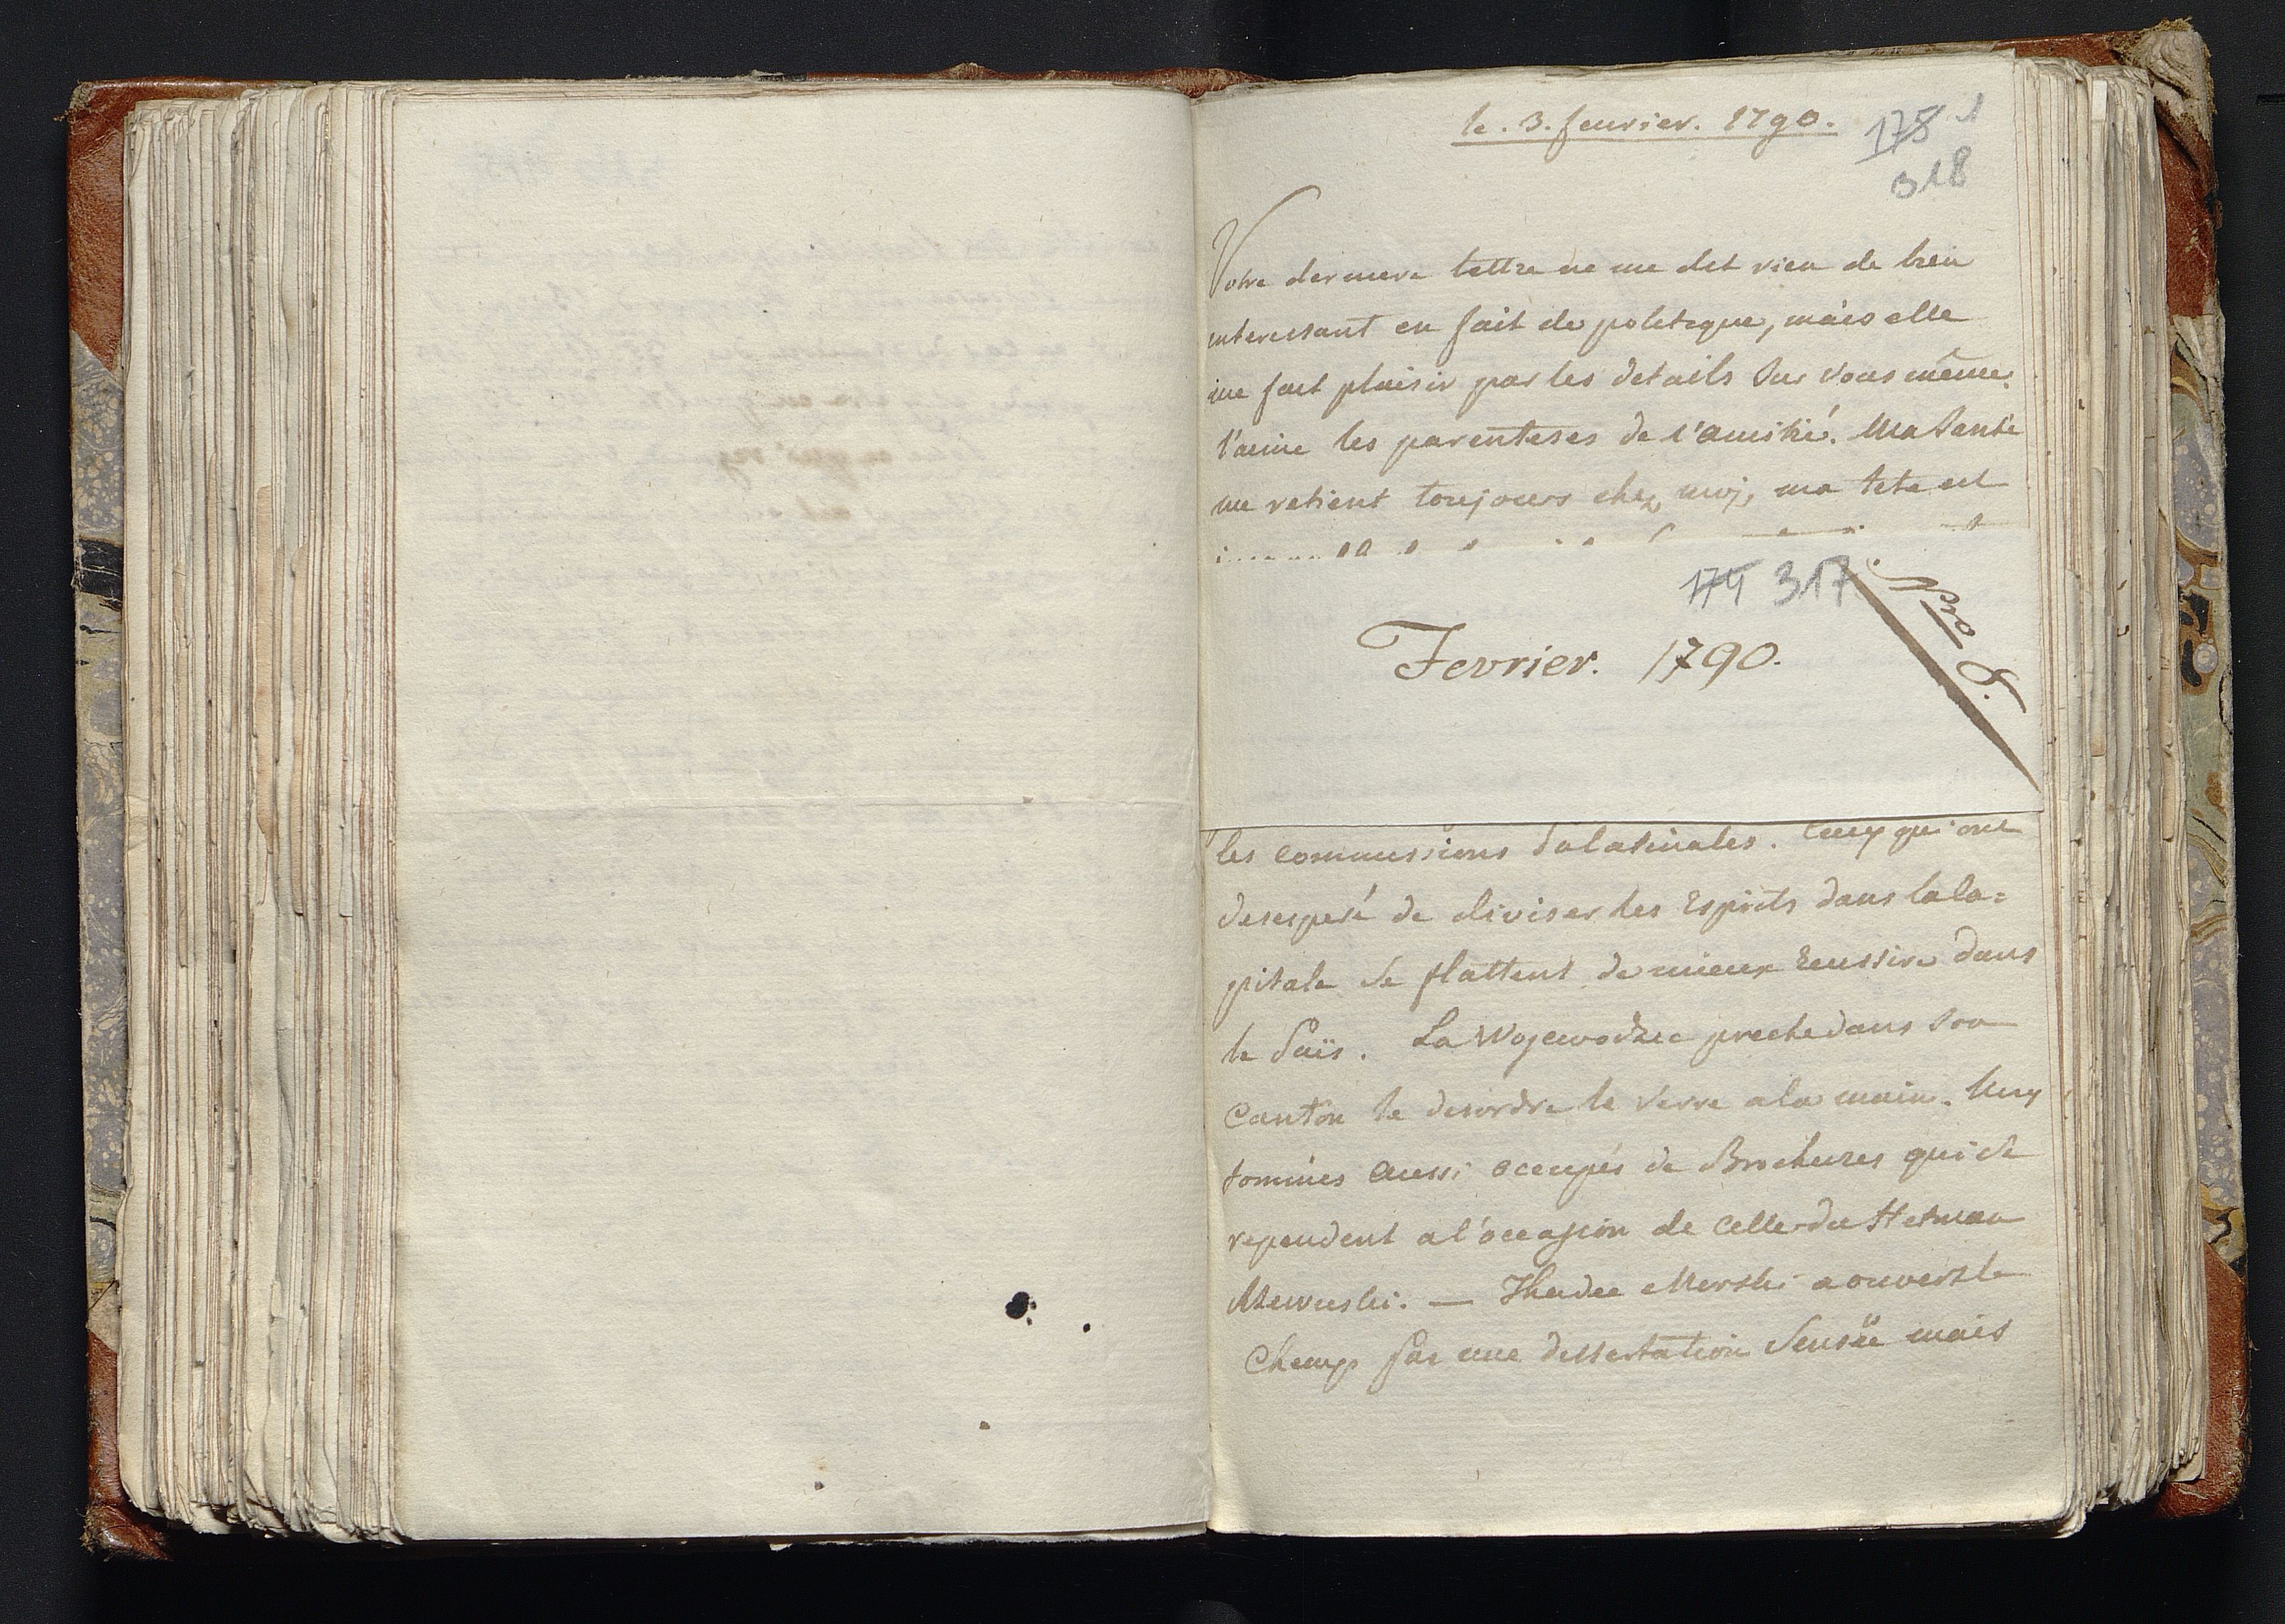 le. 3. feuvrier. 1790.
178 1
318
Votre derniere lettre ne me dit rien de bien
interessant en fait de politique, mais elle
me fait plaisir par les details sur vous même.
l'aime les parenteses de l'amitié. Ma Santé
me retient toujours chez moi, ma tete est
174 317
Nro 8.
Fevrier. 1790.
les commissions Palatinales. Ceux qui ont
desesperé de diviser les Esprits dans la Ca=
pitale se flattent de mieux reussire dans
le Païs. Le Wojewodzic preche dans son
Canton le desordre le verre a la main. Nous
sommes aussi occupés de Brochures qui se
rependent a l'occasion de celle du Hetman
Rzewuski. — Thadee Morski a ouvert le
Champ par une dissertation Sensée mais